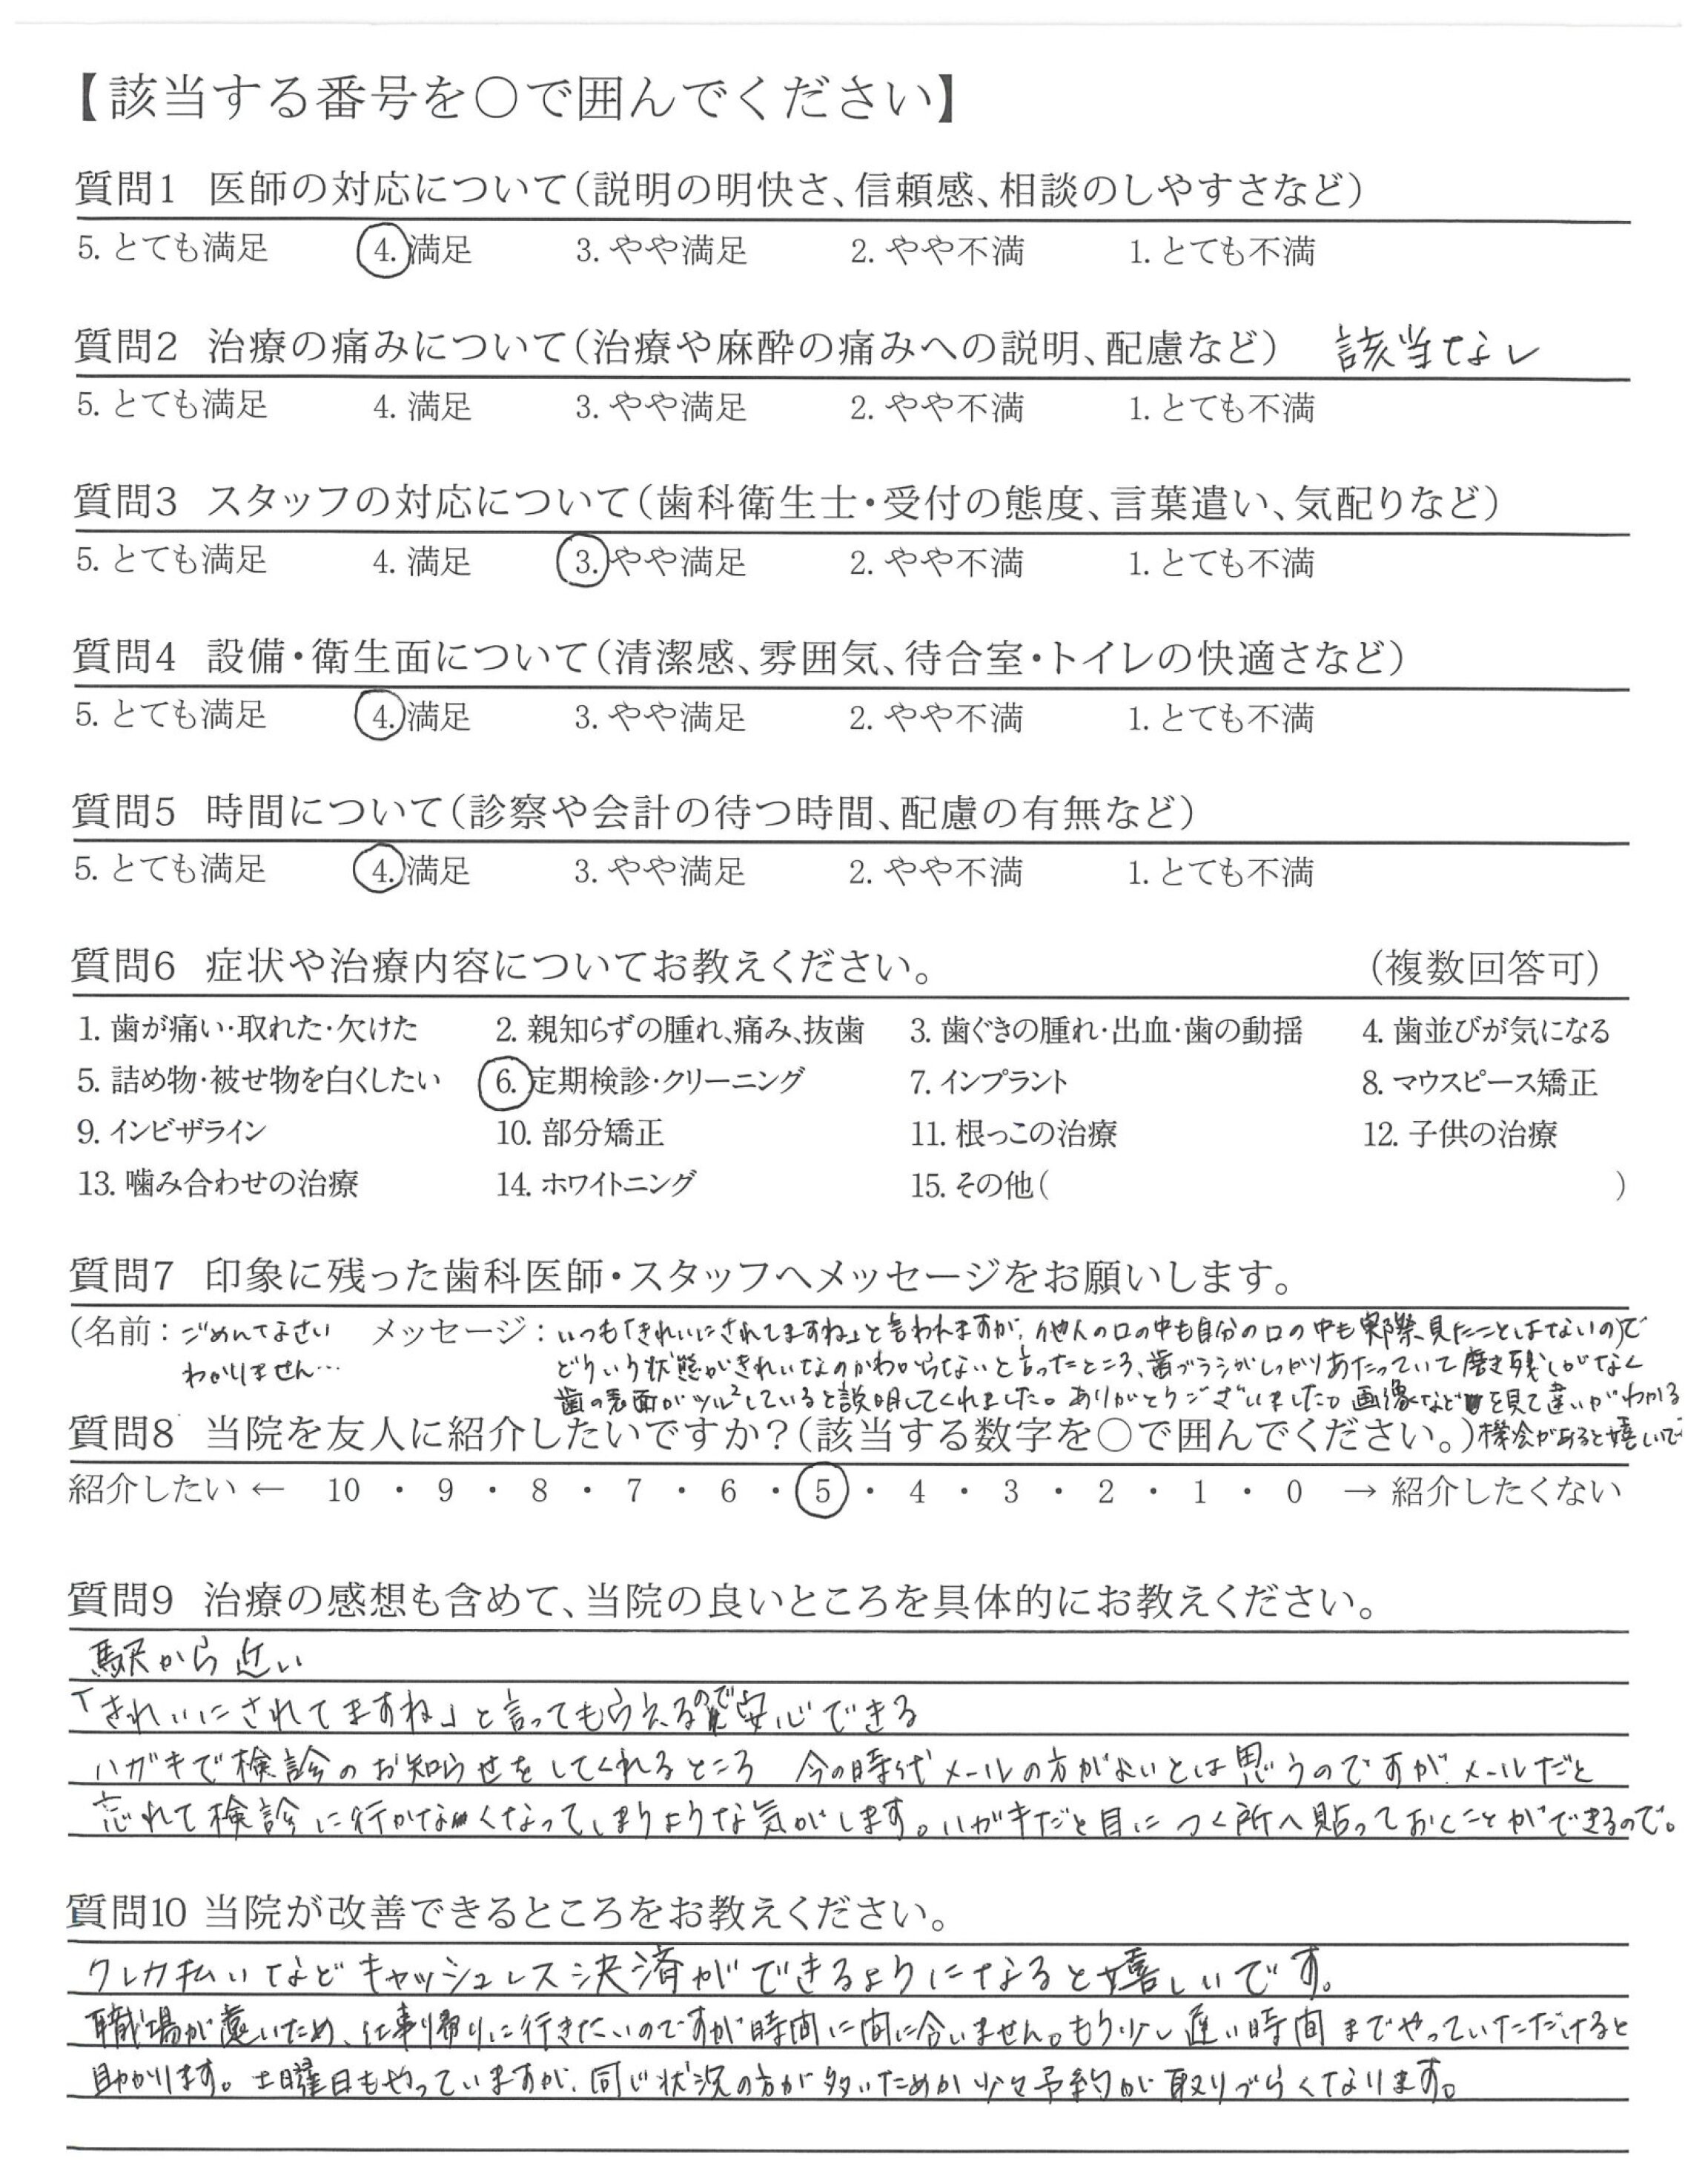 【該当する番号を〇で囲んでください】
質問1 医師の対応について(説明の明快さ、信頼感、相談のしやすさなど)
5. とても満足 4. 満足 3. やや満足 2. やや不満 1. とても不満
質問2 治療の痛みについて(治療や麻酔の痛みへの説明、配慮など) 該当なし
5. とても満足 4. 満足 3. やや満足 2. やや不満 1. とても不満
質問3 スタッフの対応について(歯科衛生士・受付の態度、言葉遣い、気配りなど)
5. とても満足 4. 満足 3. やや満足 2. やや不満 1. とても不満
質問4 設備・衛生面について(清潔感、雰囲気、待合室・トイレの快適さなど)
5. とても満足 4. 満足 3. やや満足 2. やや不満 1. とても不満
質問5 時間について(診察や会計の待つ時間、配慮の有無など)
5. とても満足 4. 満足 3. やや満足 2. やや不満 1. とても不満
質問6 症状や治療内容についてお教えください。 (複数回答可)
1. 歯が痛い・取れた・欠けた 2. 親知らずの腫れ、痛み、抜歯 3. 歯ぐきの腫れ・出血・歯の動揺 4. 歯並びが気になる
5. 詰め物・被せ物を白くしたい 6. 定期検診・クリーニング 7. インプラント 8. マウスピース矯正
9. インビザライン 10. 部分矯正 11. 根っこの治療 12. 子供の治療
13. 噛み合わせの治療 14. ホワイトニング 15. その他( )
質問7 印象に残った歯科医師・スタッフへメッセージをお願いします。
(名前: ごめんなさい メッセージ: いつも「きれいにされてますね」と言われますが、他人の口の中も自分の口の中も実際見たことはないので)
わかりません… どういう状態がきれいなのかわからないと言ったところ、歯ブラシがしっかりあたっていて磨き残しがなく
歯の表面がツル²していると説明してくれました。ありがとうございました。画像などを見て違いがわかる
質問8 当院を友人に紹介したいですか?(該当する数字を〇で囲んでください。) 機会があると嬉しいで
紹介したい ← 10 ・ 9 ・ 8 ・ 7 ・ 6 ・ 5 ・ 4 ・ 3 ・ 2 ・ 1 ・ 0 → 紹介したくない
質問9 治療の感想も含めて、当院の良いところを具体的にお教えください。
駅から近い
「きれいにされてますね」と言ってもらえるので安心できる
ハガキで検診のお知らせをしてくれるところ 今の時代メールの方がよいとは思うのですが、メールだと
忘れて検診に行かなくなってしまうような気がします。ハガキだと目につく所へ貼っておくことができるので。
質問10 当院が改善できるところをお教えください。
クレカ払いなどキャッシュレス決済ができるようになると嬉しいです。
職場が遠いため、仕事帰りに行きたいのですが時間に間に合いません。もう少し遅い時間までやっていただけると
助かります。土曜日もやっていますが、同じ状況の方が多いためか少々予約が取りづらくなります。